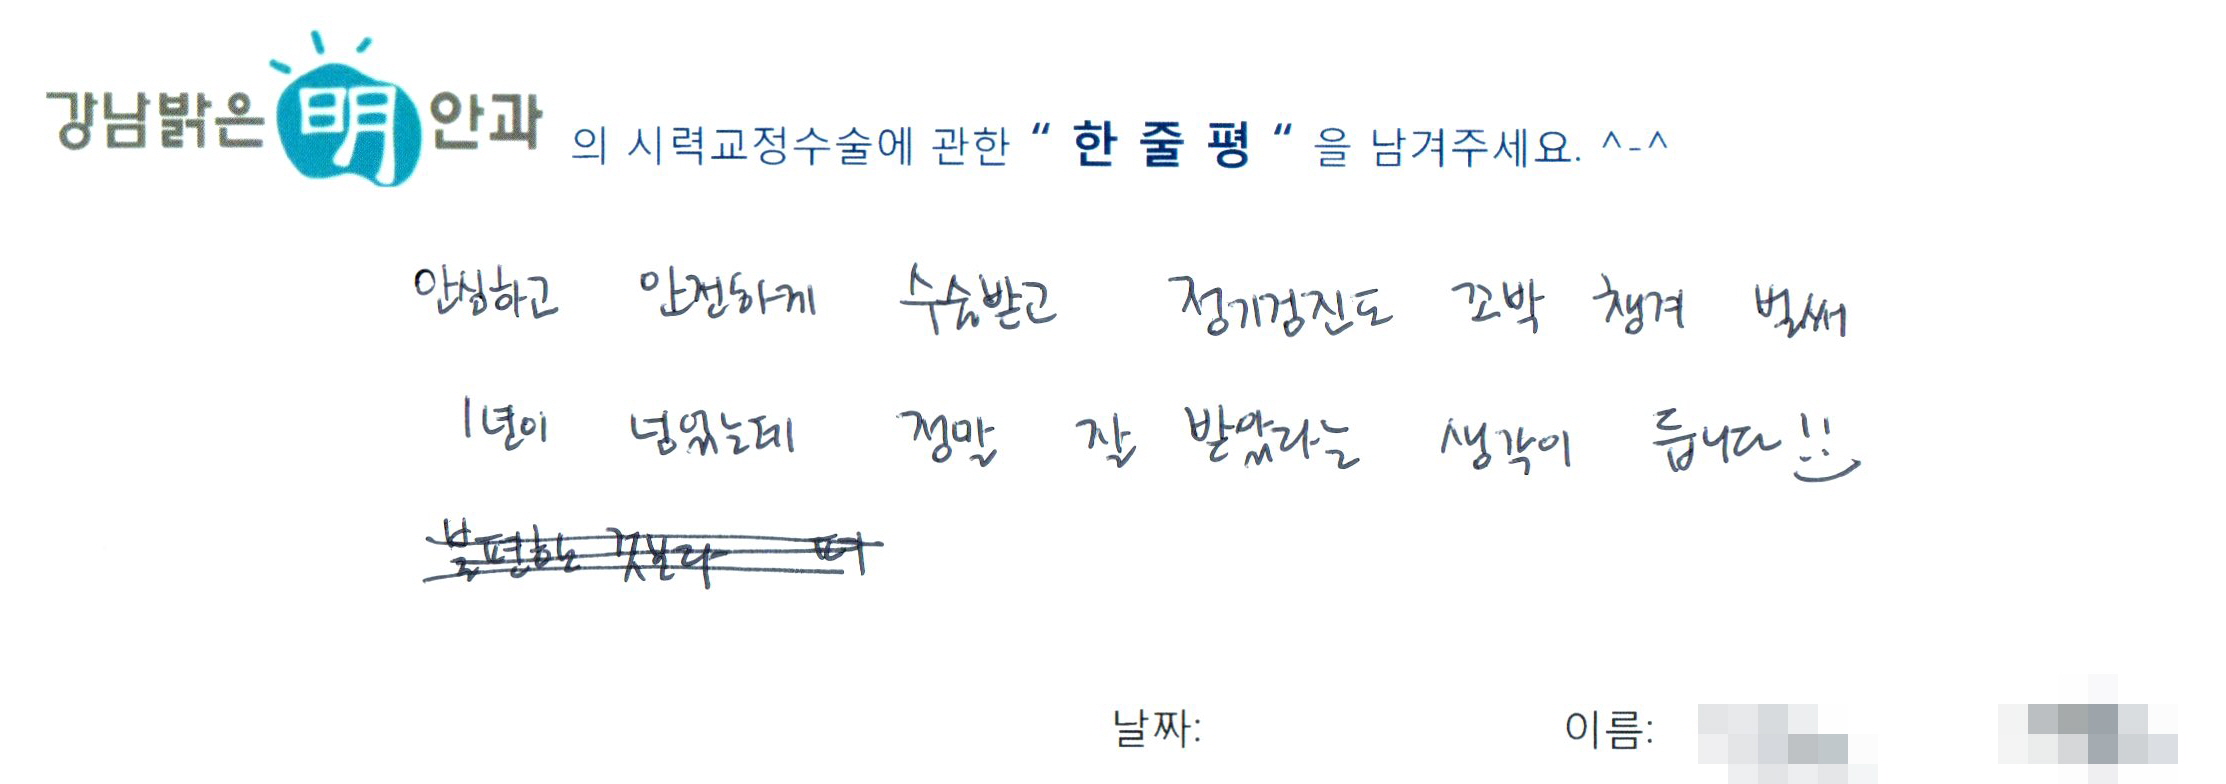 강남밝은明안과 의 시력교정수술에 관한 “ 한 줄 평 “ 을 남겨주세요. ^-^
안심하고 안전하게 수술받고 정기검진도 꼬박 챙겨 벌써
1년이 넘었는데 정말 잘 받았다는 생각이 듭니다!!
불편한
날짜: 이름: